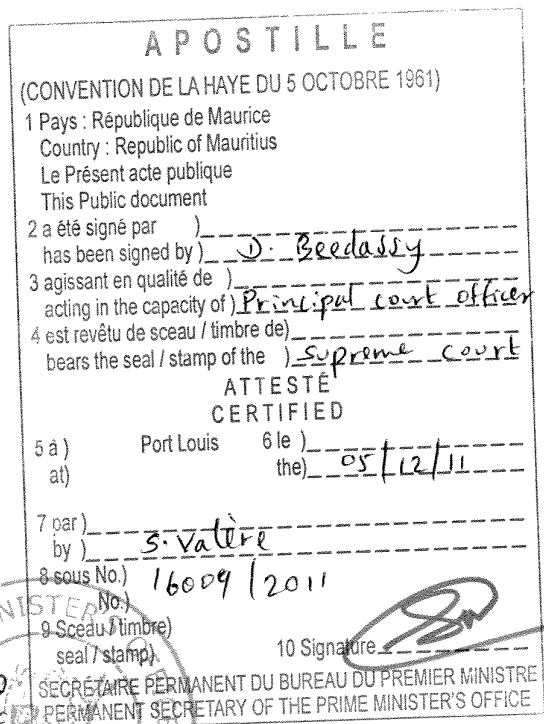 APOSTILLE
(CONVENTION DE LA HAYE DU 5 OCTOBRE 1961)
1 Pays : République de Maurice
Country : Republic of Mauritius
Le Présent acte publique
This Public document
2 a été signé par )
has been signed by ) D. Beedassy
3 agissant en qualité de )
acting in the capacity of ) Principal court officer
4 est revêtu de sceau / timbre de)
bears the seal / stamp of the ) Supreme court
ATTESTÉ
CERTIFIED
5 à ) Port Louis 6 le )
at) the) 05/12/11
7 par )
by ) S. Valère
8 sous No.) 16009/2011
No.)
9 Sceau / timbre)
seal / stamp) 10 Signature
SECRÉTAIRE PERMANENT DU BUREAU DU PREMIER MINISTRE
PERMANENT SECRETARY OF THE PRIME MINISTER'S OFFICE